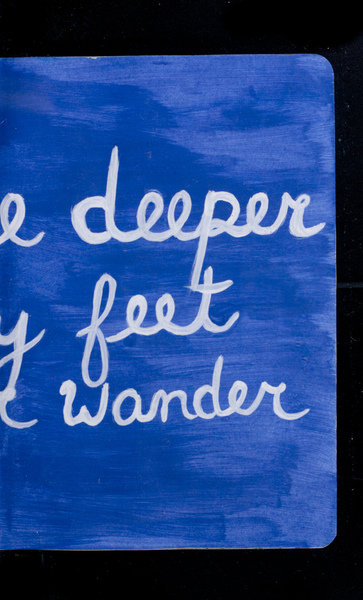 e deeper
y feet
wander